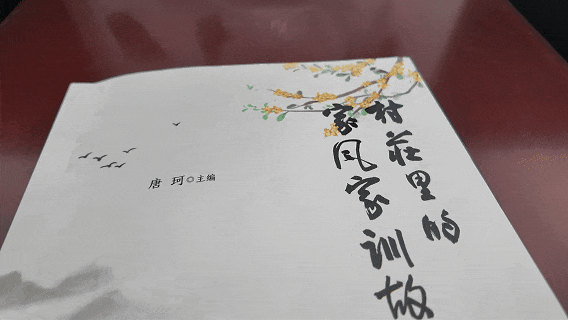 村庄里的
家风家训故
唐 珂◎主编